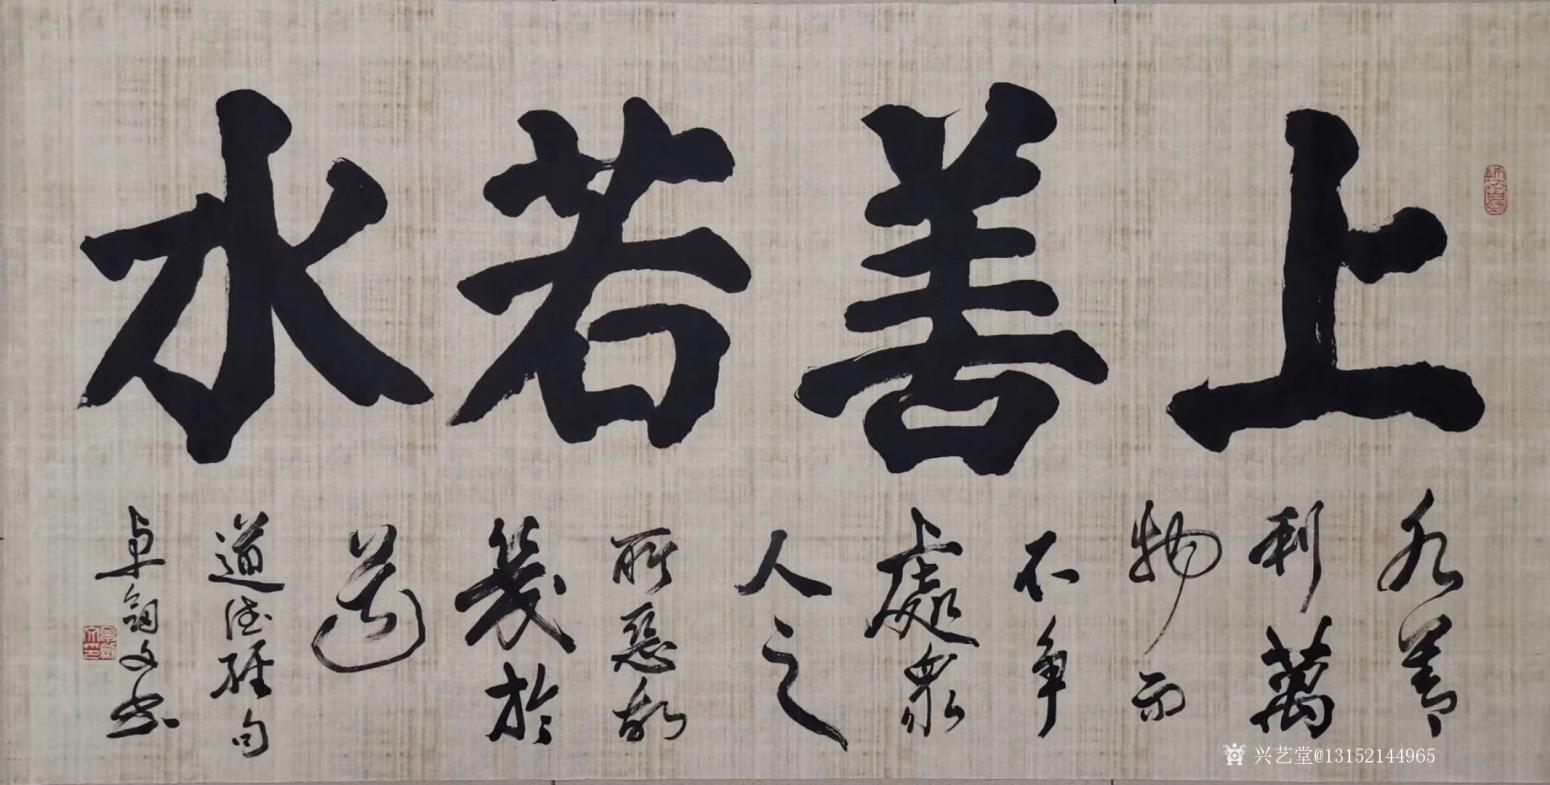 上善若水
水善
利萬
物而
不争
處衆
人之
所惡故
幾於
道
道德經句
卓翎文书
兴艺堂@13152144965